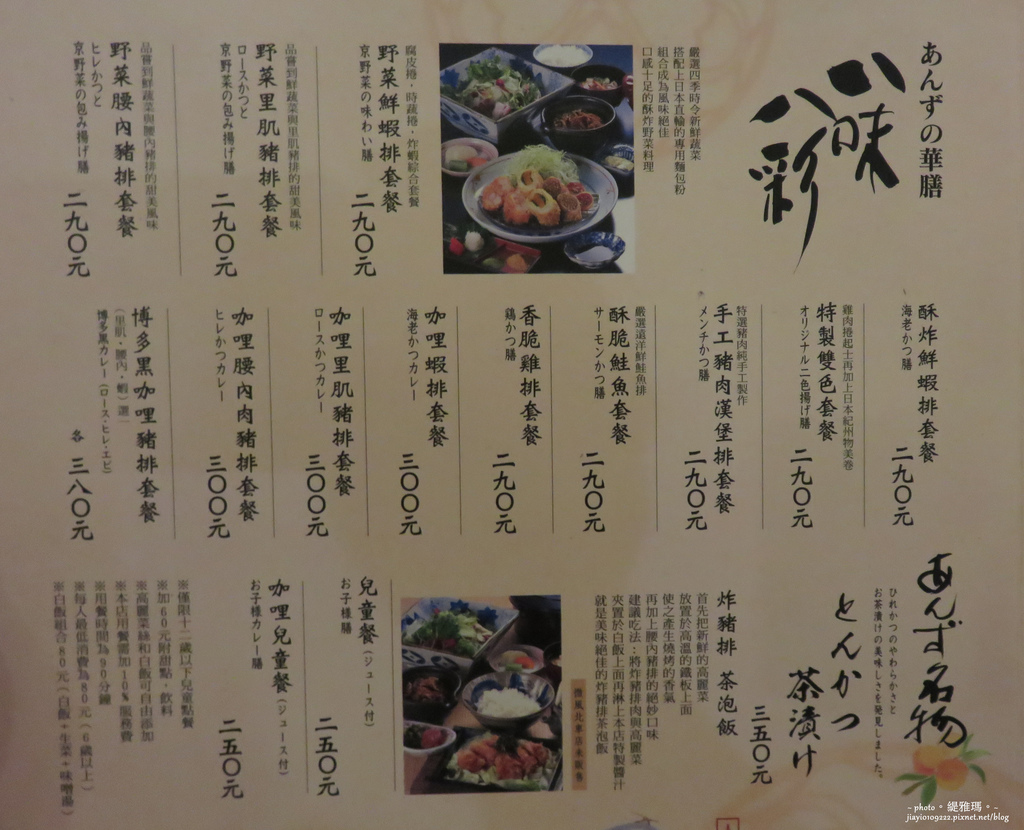 あんずの華膳
八味
八彩
嚴選四季時令新鮮蔬菜
搭配上日本直輸的專用麵包粉
組合成為風味絕佳
口感十足的酥炸野菜料理
腐皮捲・時蔬捲・炸蝦綜合套餐
野菜鮮蝦排套餐
京野菜の味わい膳
二九〇元
品嘗到鮮蔬菜與里肌豬排的甜美風味
野菜里肌豬排套餐
ロースかつと
京野菜の包み揚げ膳
二九〇元
品嘗到鮮蔬菜與腰內豬排的甜美風味
野菜腰內豬排套餐
ヒレかつと
京野菜の包み揚げ膳
二九〇元
酥炸鮮蝦排套餐
海老かつ膳
二九〇元
雞肉捲起士再加上日本紀州物美卷
特製雙色套餐
オリジナル二色揚げ膳
二九〇元
特選豬肉純手工製作
手工豬肉漢堡排套餐
メンチかつ膳
二九〇元
嚴選遠洋鮮鮭魚排
酥脆鮭魚套餐
サーモンかつ膳
二九〇元
香脆雞排套餐
鶏かつ膳
二九〇元
咖哩蝦排套餐
海老かつカレー
三〇〇元
咖哩里肌豬排套餐
ロースかつカレー
三〇〇元
咖哩腰內肉豬排套餐
ヒレかつカレー
三〇〇元
博多黑咖哩豬排套餐
(里肌・腰內・蝦)選一
博多黒カレー(ロース・ヒレ・エビ)
各 三八〇元
あんず名物
ひれかつのやわらかさと
お茶漬けの美味しさを発見しました。
とんかつ
茶漬け
炸豬排 茶泡飯
三五〇元
首先把新鮮的高麗菜
放置於高溫的鐵板上面
使之產生燒烤的香氣
再加上腰內豬排的絕妙口味
建議吃法:將炸豬排肉與高麗菜
夾置於白飯上面再淋上本店特製醬汁
就是美味絕佳的炸豬排茶泡飯
兒童餐(ジュース付)
お子様膳
二五〇元
咖哩兒童餐(ジュース付)
お子様カレー膳
二五〇元
※僅限十二歲以下兒童點餐
※加60元附甜點・飲料
※高麗菜絲和白飯可自由添加
※本店用餐需加10%服務費
※用餐時間為90分鐘
※每人最低消費為80元(6歲以上)
※白飯組合80元(白飯+生菜+味噌湯)
~ photo。緹雅瑪。~
jiayio109222.pixnet.net/blog